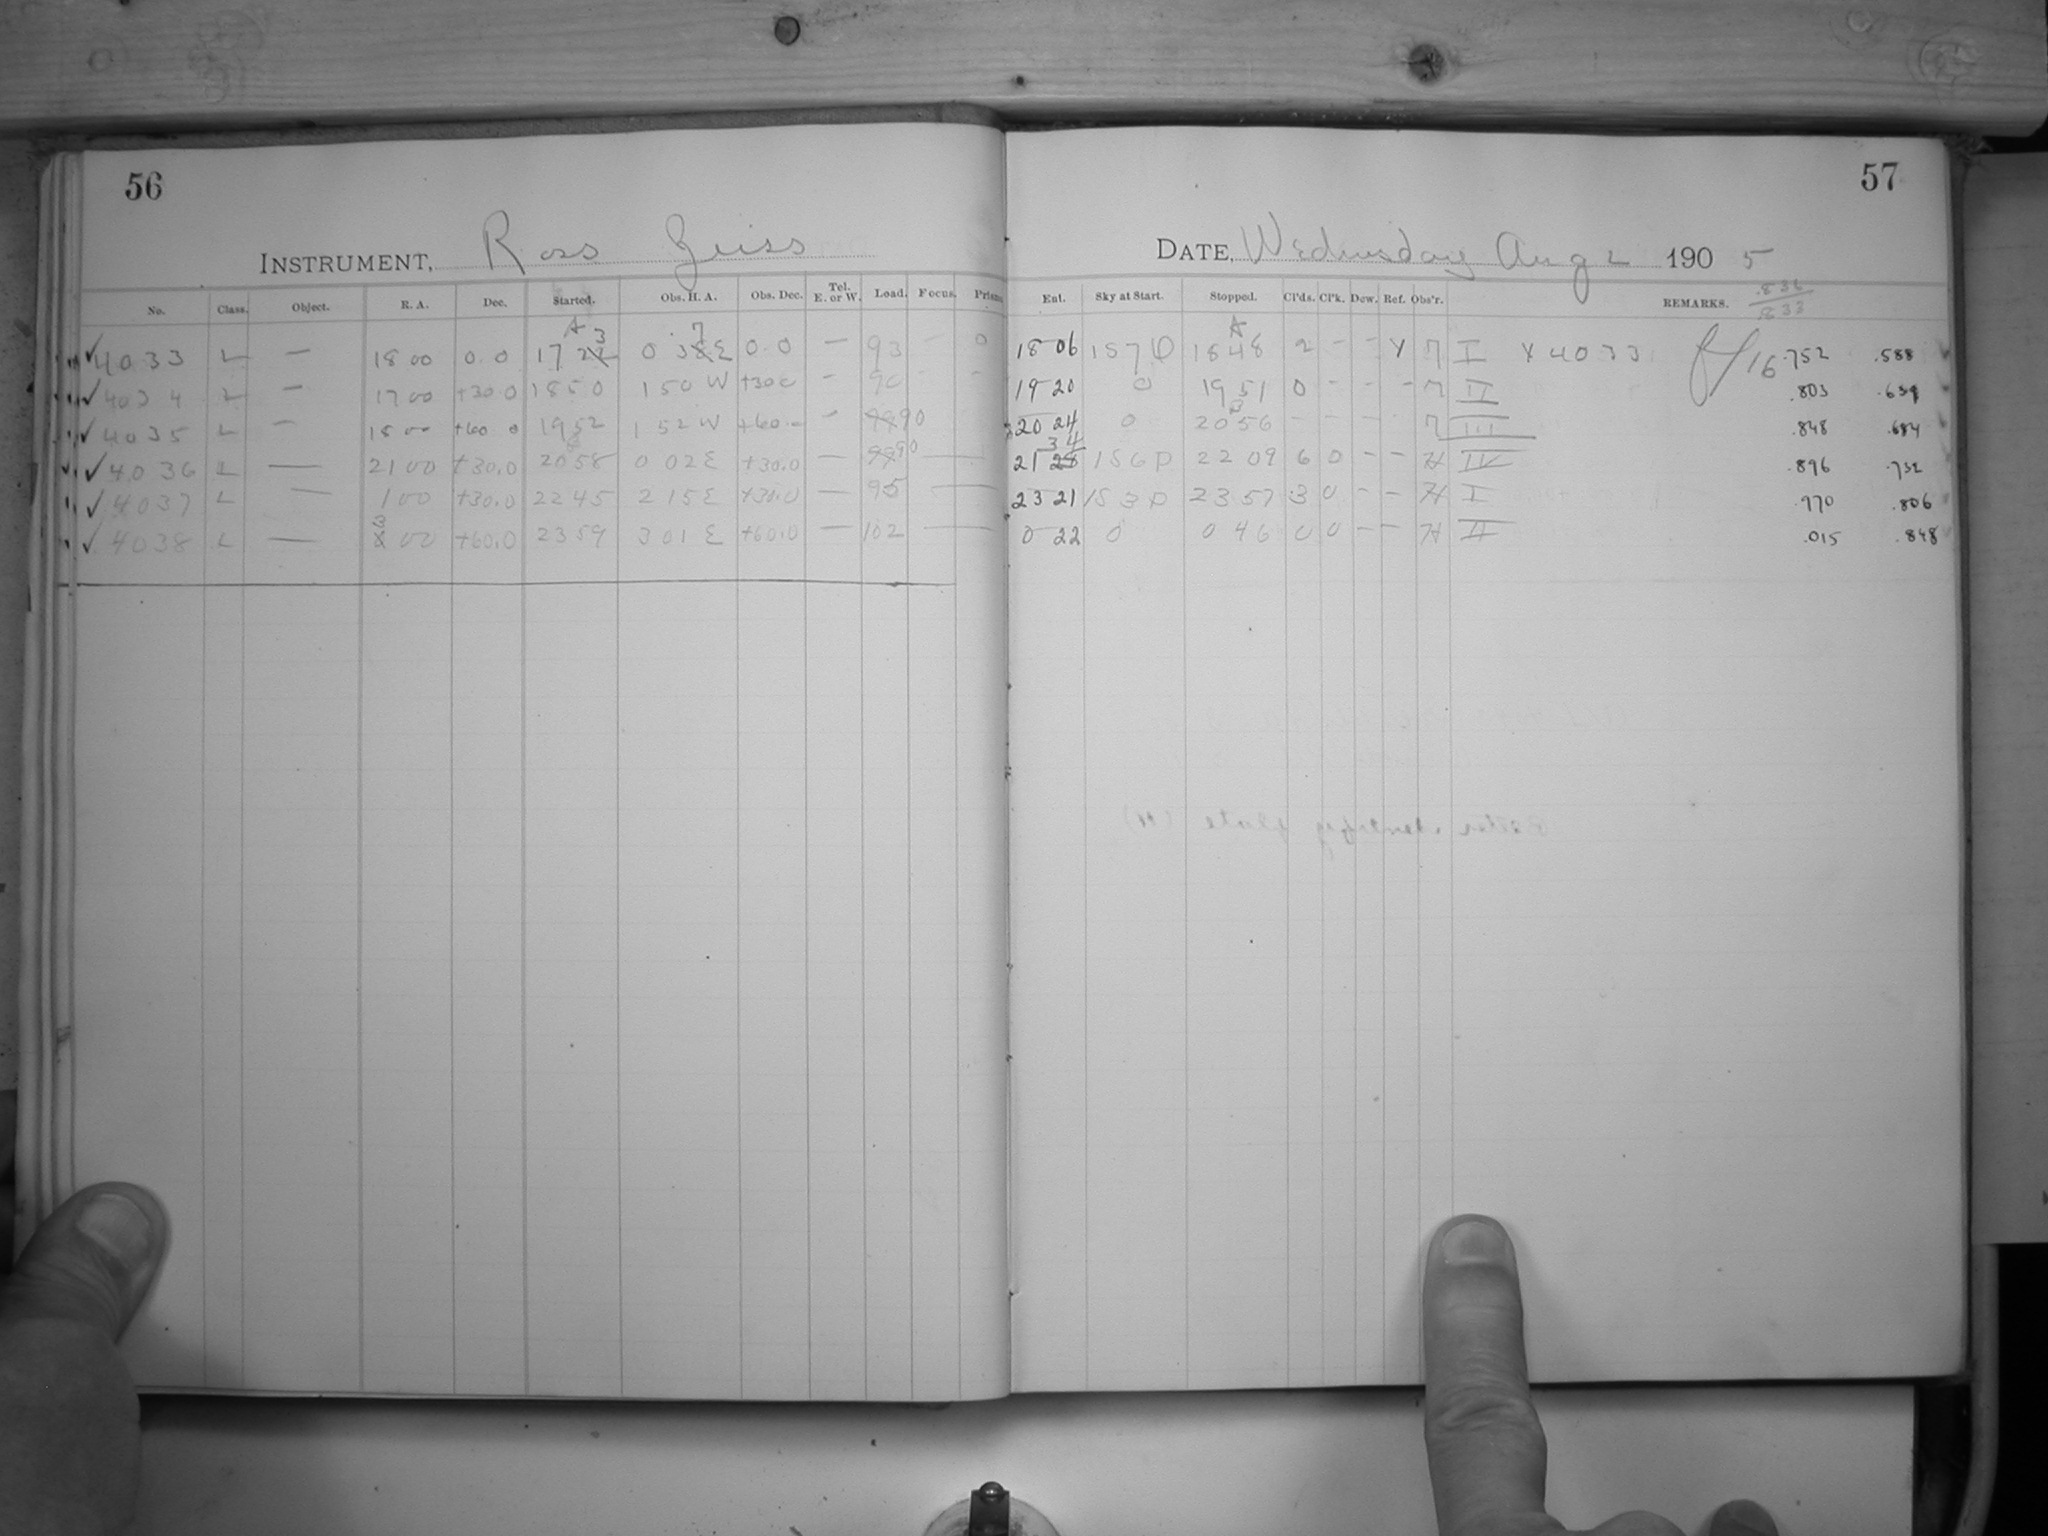 56
57
INSTRUMENT, Ross Zeiss
DATE, Wednesday Aug 2 1905
.836
.833
No. Class. Object. R. A. Dec. Started. Obs. H. A. Obs. Dec. Tel. E. or W. Load. Focus. Prism
Ent. Sky at Start. Stopped. Cl'ds. Cl'k. Dew. Ref. Obs'r. REMARKS.
✓ 4033 L — 18 00 0.0 17 2 3 0 3 7 E 0.0 — 93 - 0 18 06 157 1848 2 - - Y I X 4033 16 .752 .588
✓ 4034 L — 17 00 +30.0 1850 1 50 W +30.0 — 90 - - 19 20 0 1951 0 - - - II .803 .639
✓ 4035 L — 18 00 +60.0 1952 1 52 W +60.0 — 90 20 24 0 2056 - - - - III .848 .684
✓ 4036 L — 21 00 +30.0 2058 0 02 E +30.0 — 90 — 21 34 156 p 2209 6 0 - - H IV .896 .732
✓ 4037 L — 1 00 +30.0 2245 2 15 E +30.0 — 95 — 23 21 153 p 2357 3 0 - - H I .970 .806
✓ 4038 L — 3 00 +60.0 2359 3 01 E +60.0 — 102 — 0 22 0 0 46 0 0 - - H II .015 .848